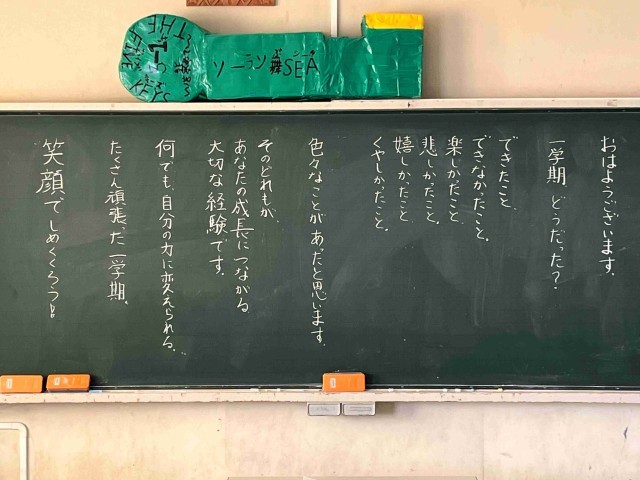 THE
FIVE
ソーラン舞SEA
おはようございます。
一学期 どうだった？
できたこと、
できなかったこと。
楽しかったこと、
悲しかったこと。
嬉しかったこと、
くやしかったこと。
色々なことがあったと思います。
そのどれもが、
あなたの成長につながる
大切な経験です。
何でも、自分の力に変えられる。
たくさん頑張った一学期。
笑顔でしめくくろう!!